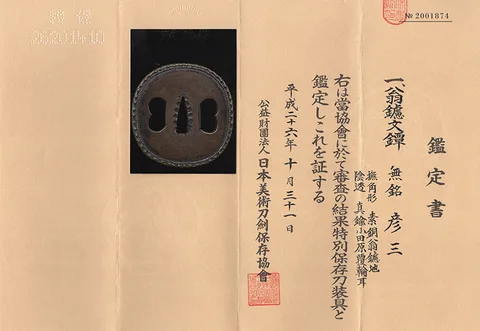 № 2001874
鑑定書
一、翁鑢文鐔 無銘 彦三
撫角形 素銅翁鑢地
陰透 真鍮小田原覆輪耳
右は當協會に於て審査の結果特別保存刀装具と
鑑定しこれを証する
平成二十六年十月三十一日
公益財團法人 日本美術刀劍保存協會